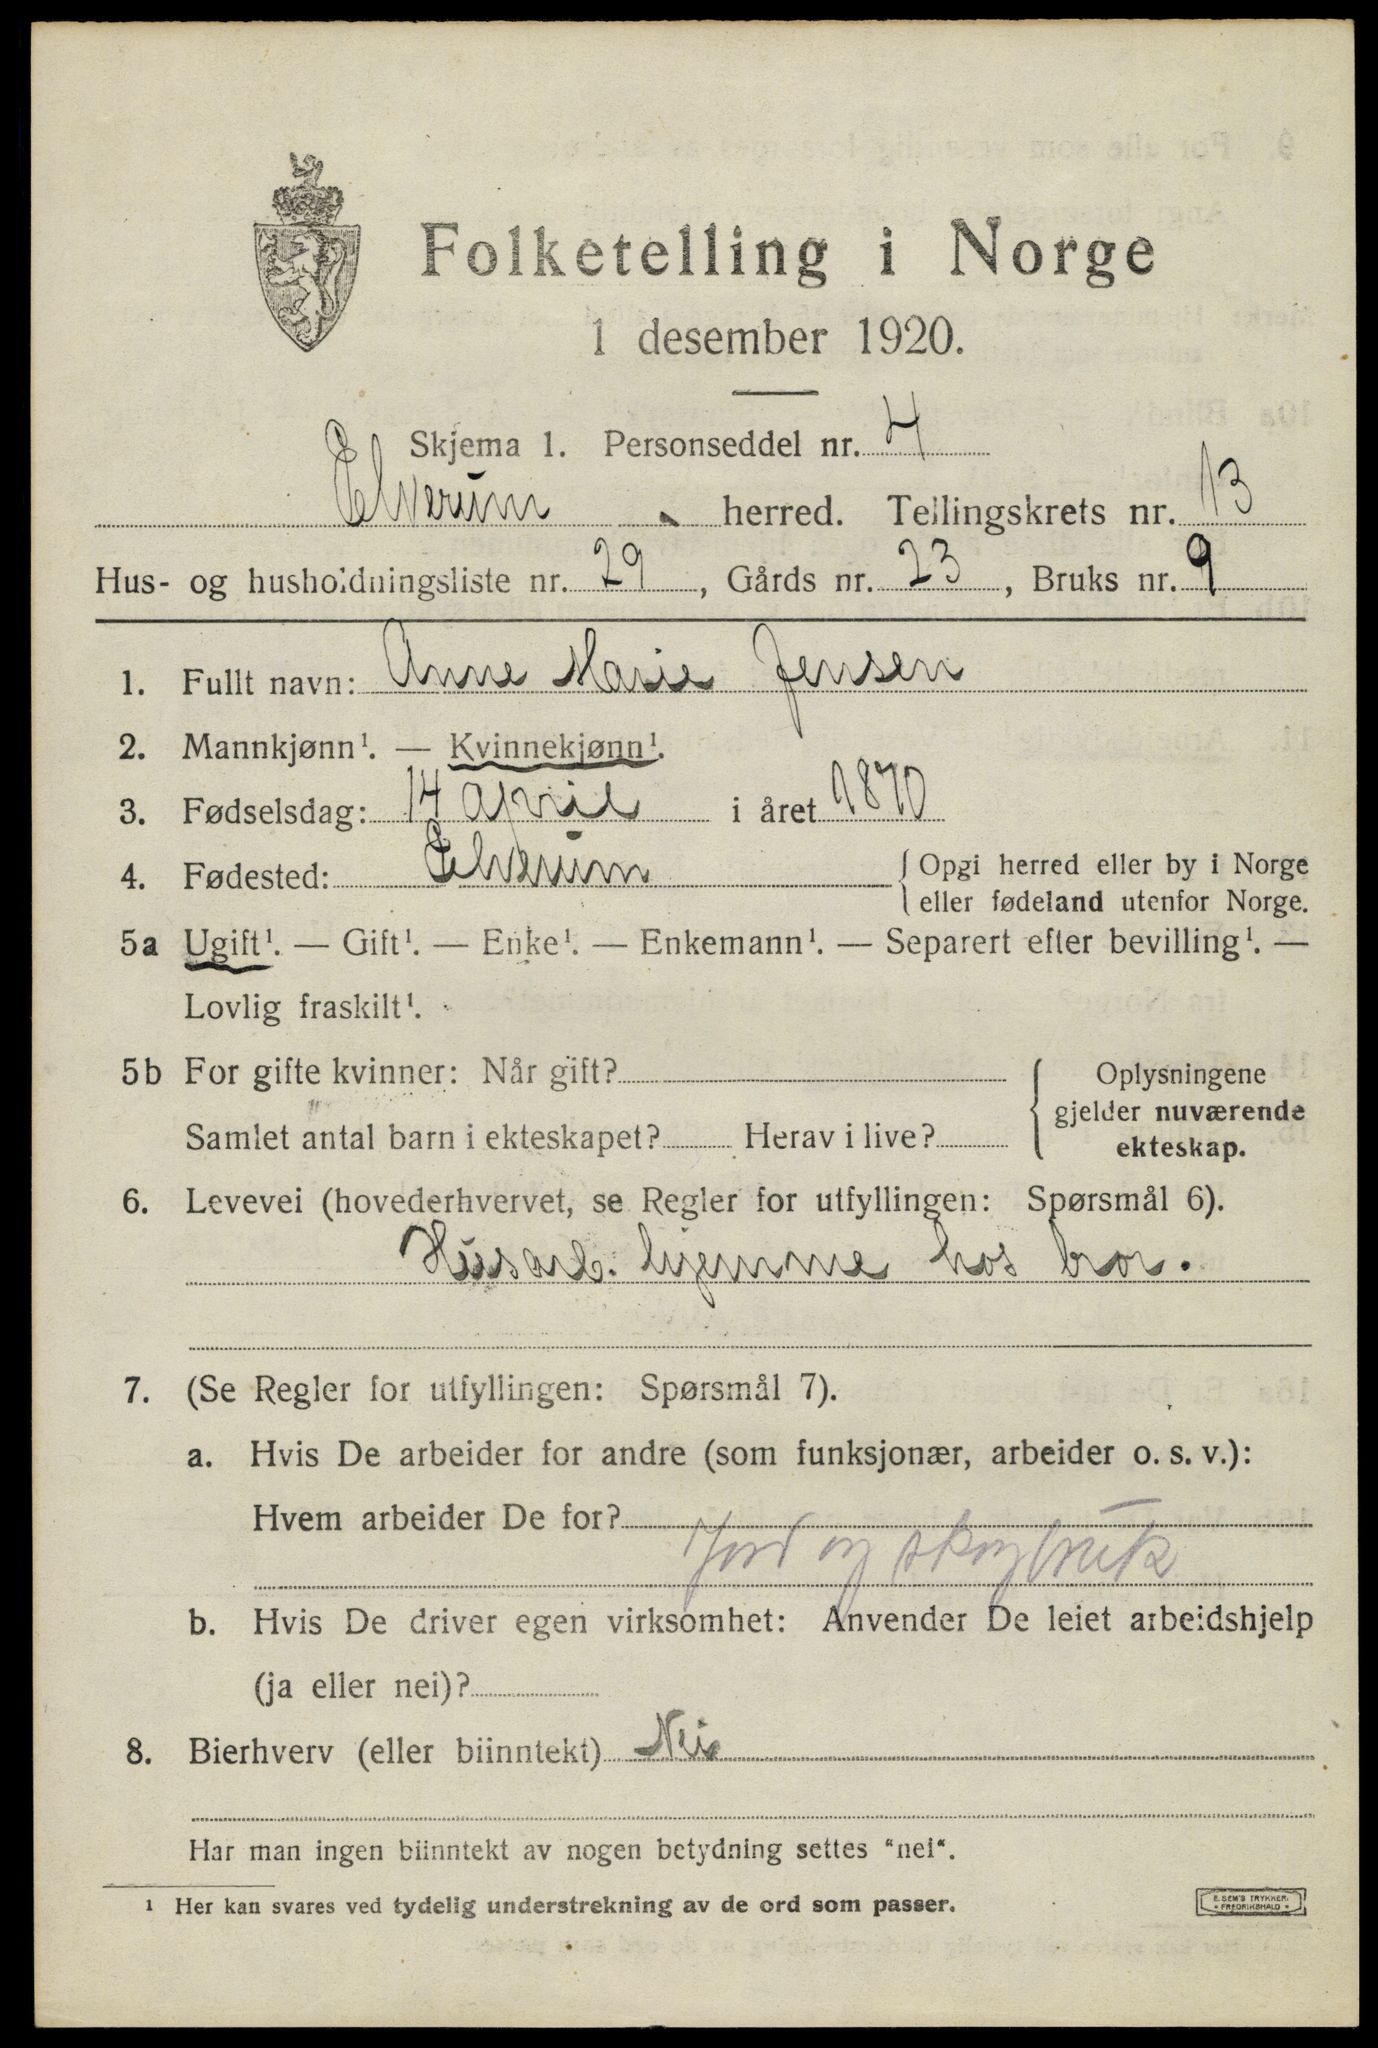 Folketelling i Norge
1 desember 1920.
Skjema 1. Personseddel nr. 4
Elverum herred. Tellingskrets nr. 13
Hus- og husholdningsliste nr. 29, Gårds nr. 23, Bruks nr. 9
1. Fullt navn: Anne Marie Jensen
2. Mannkjønn¹. — Kvinnekjønn¹.
3. Fødselsdag: 14 april i året 1870
4. Fødested: Elverum { Opgi herred eller by i Norge
eller fødeland utenfor Norge.
5a Ugift¹. — Gift¹. — Enke¹. — Enkemann¹. — Separert efter bevilling¹. —
Lovlig fraskilt¹.
5b For gifte kvinner: Når gift?
Samlet antal barn i ekteskapet? Herav i live?
{ Oplysningene
gjelder nuværende
ekteskap.
6. Levevei (hovederhvervet, se Regler for utfyllingen: Spørsmål 6).
Husarb. hjemme hos bror.
7. (Se Regler for utfyllingen: Spørsmål 7).
a. Hvis De arbeider for andre (som funksjonær, arbeider o. s. v.):
Hvem arbeider De for?
Jord og skogbruk
b. Hvis De driver egen virksomhet: Anvender De leiet arbeidshjelp
(ja eller nei)?
8. Bierhverv (eller biinntekt) Nei
Har man ingen biinntekt av nogen betydning settes "nei".
¹ Her kan svares ved tydelig understrekning av de ord som passer.
E. SEM'S TRYKKERI
FREDRIKSHALD